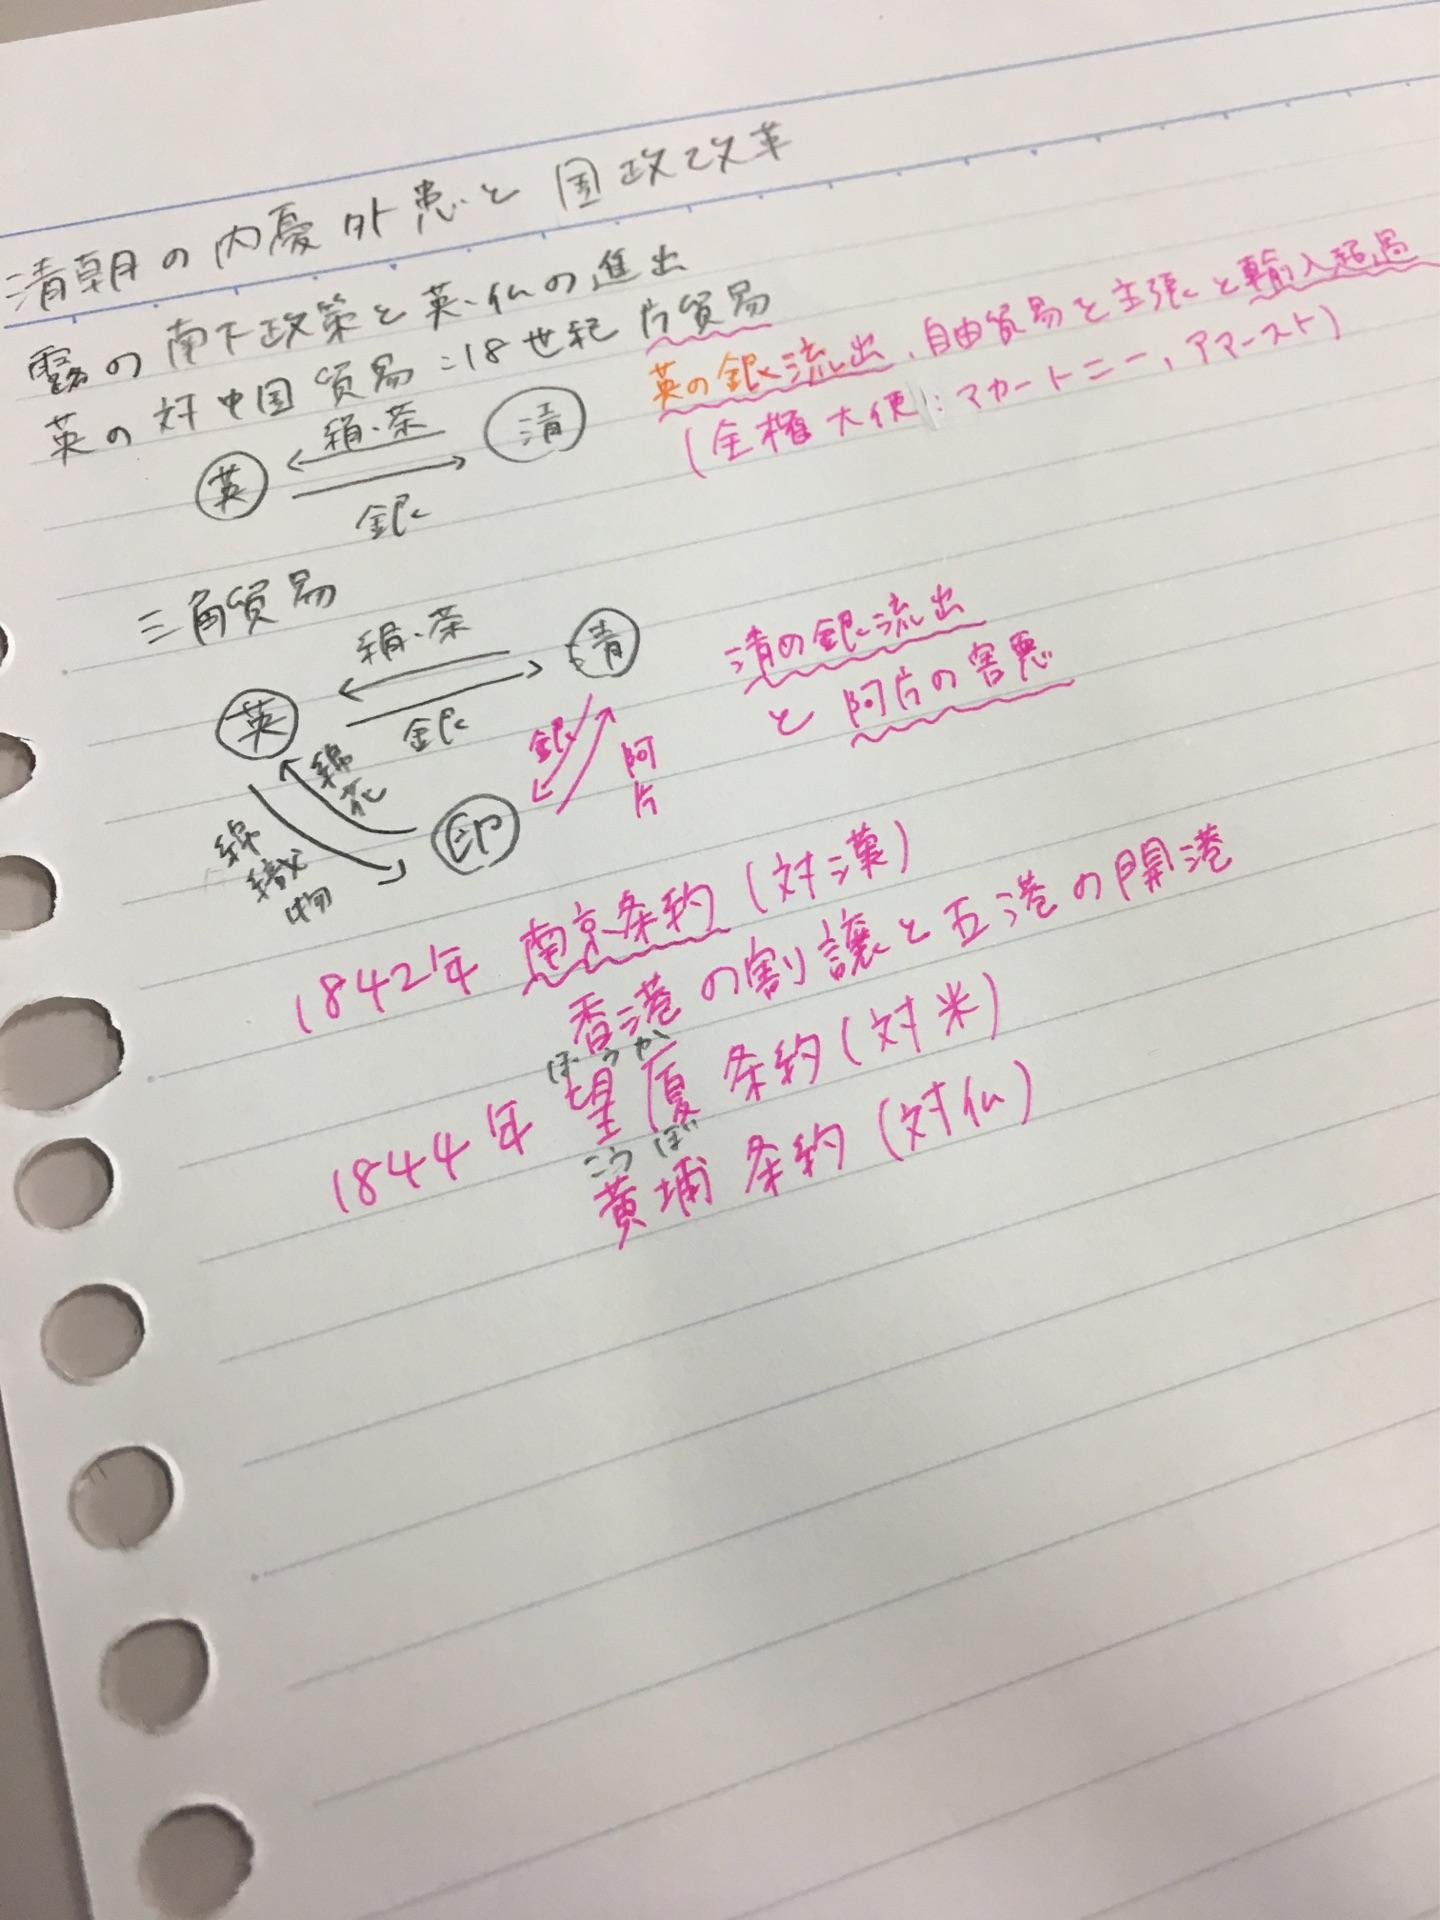 清朝の内憂外患と国政改革
露の南下政策と英・仏の進出
英の対中国貿易:18世紀 片貿易
英の銀流出、自由貿易を主張と輸入超過
(全権大使:マカートニー,アマースト)
絹・茶
英
清
銀
三角貿易
絹・茶
英
清
銀
綿花
綿織物
印
銀
阿片
清の銀流出
と阿片の害悪
1842年 南京条約(対漢)
香港の割譲と五港の開港
ぼうか
1844年 望厦条約(対米)
こうほ
黄埔条約(対仏)